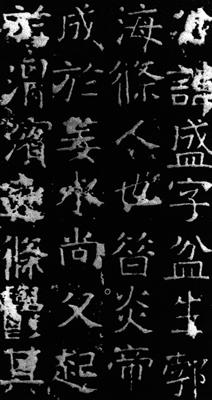 公諱盛字盆生郣
海條人也昔炎帝
成於姜水尚父起
於渭濱條其